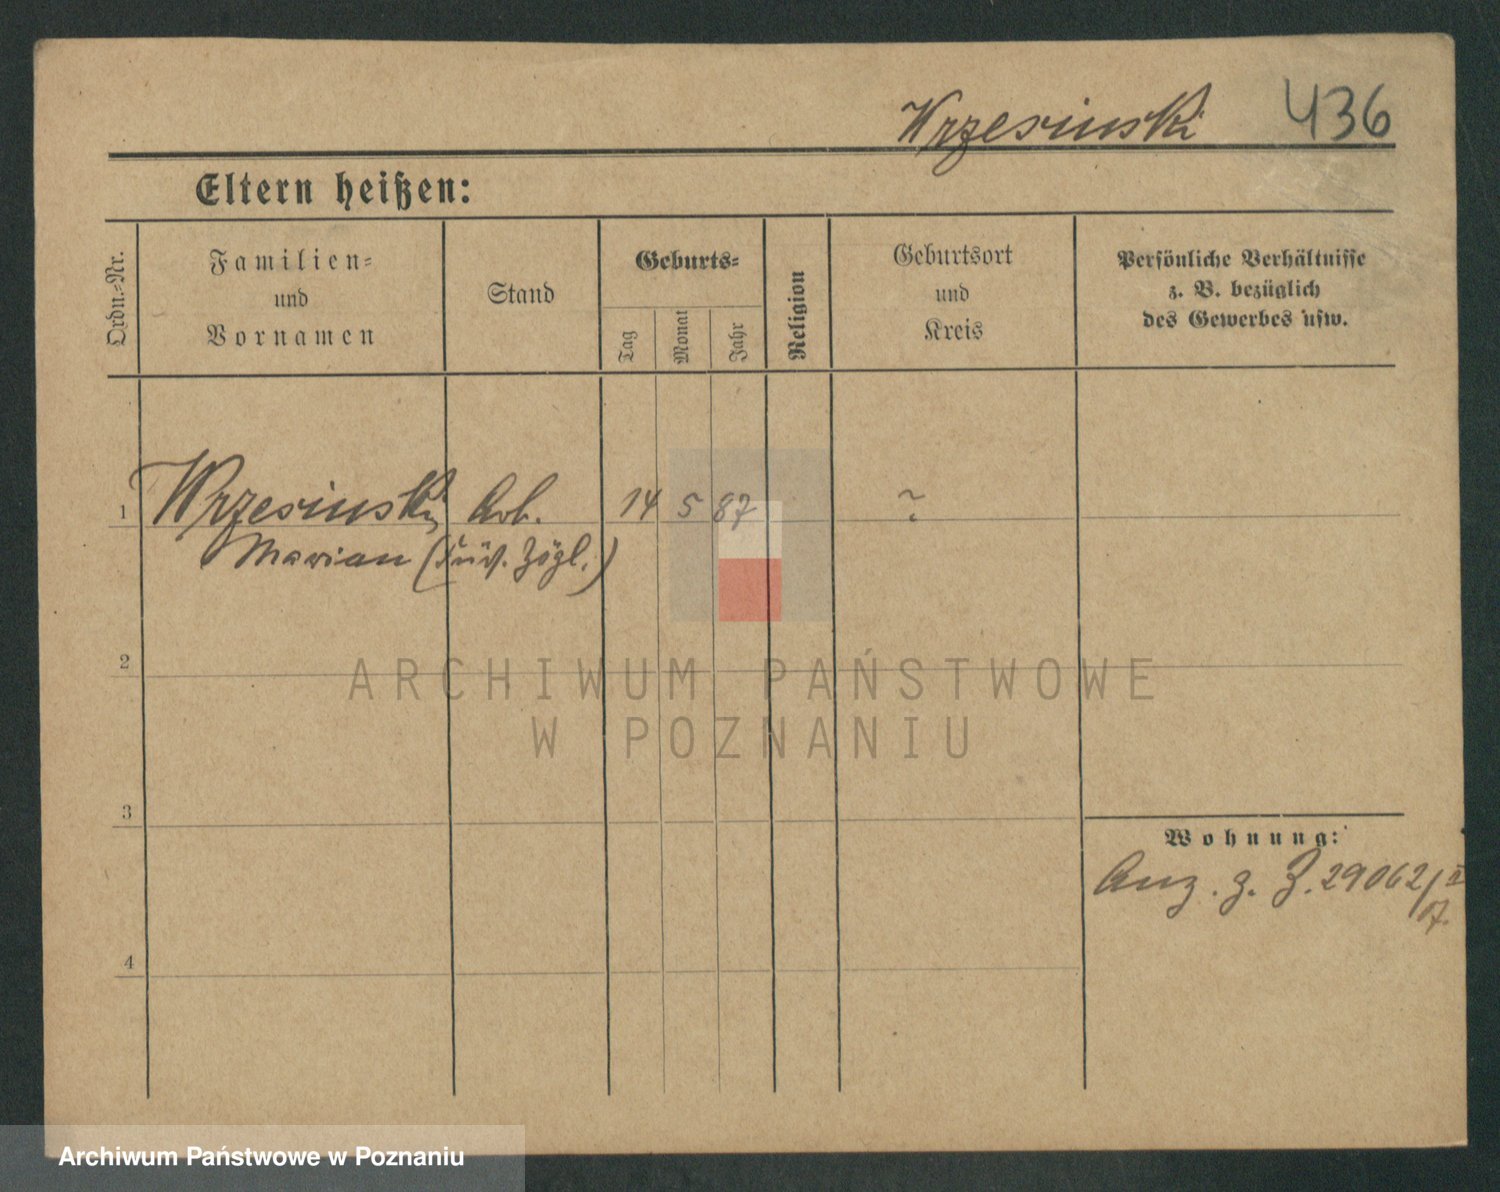 Wrzesinski 436
Eltern heißen:
Ordn.-Nr.
Familien-
und
Vornamen
Stand
Geburts-
Tag
Monat
Jahr
Religion
Geburtsort
und
Kreis
Persönliche Verhältnisse
z. B. bezüglich
des Gewerbes usw.
1 Wrzesinski Arb. 14 5 87 ?
Marian (Zögl.)
2
ARCHIWUM PAŃSTWOWE
W POZNANIU
3
Wohnung:
Anz. z. Z. 29062/
4
Archiwum Państwowe w Poznaniu